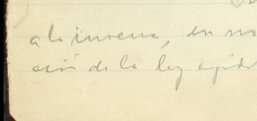 a la inversa, en no
ción de la ley